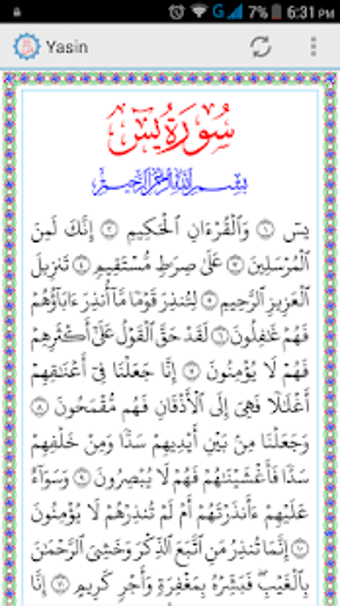 7% 6:31 PM
Yasin
سُورَةُ يسٓ
بِسْمِ اللَّهِ الرَّحْمَنِ الرَّحِيمِ
يسٓ ١ وَٱلْقُرْءَانِ ٱلْحَكِيمِ ٢ إِنَّكَ لَمِنَ
ٱلْمُرْسَلِينَ ٣ عَلَىٰ صِرَٰطٍ مُّسْتَقِيمٍ ٤ تَنزِيلَ
ٱلْعَزِيزِ ٱلرَّحِيمِ ٥ لِتُنذِرَ قَوْمًا مَّآ أُنذِرَ ءَابَآؤُهُمْ
فَهُمْ غَٰفِلُونَ ٦ لَقَدْ حَقَّ ٱلْقَوْلُ عَلَىٰٓ أَكْثَرِهِمْ
فَهُمْ لَا يُؤْمِنُونَ ٧ إِنَّا جَعَلْنَا فِىٓ أَعْنَٰقِهِمْ
أَغْلَٰلًا فَهِىَ إِلَى ٱلْأَذْقَانِ فَهُم مُّقْمَحُونَ ٨
وَجَعَلْنَا مِنۢ بَيْنِ أَيْدِيهِمْ سَدًّا وَمِنْ خَلْفِهِمْ
سَدًّا فَأَغْشَيْنَٰهُمْ فَهُمْ لَا يُبْصِرُونَ ٩ وَسَوَآءٌ
عَلَيْهِمْ ءَأَنذَرْتَهُمْ أَمْ لَمْ تُنذِرْهُمْ لَا يُؤْمِنُونَ
١٠ إِنَّمَا تُنذِرُ مَنِ ٱتَّبَعَ ٱلذِّكْرَ وَخَشِىَ ٱلرَّحْمَٰنَ
بِٱلْغَيْبِ فَبَشِّرْهُ بِمَغْفِرَةٍ وَأَجْرٍ كَرِيمٍ ١١ إِنَّا